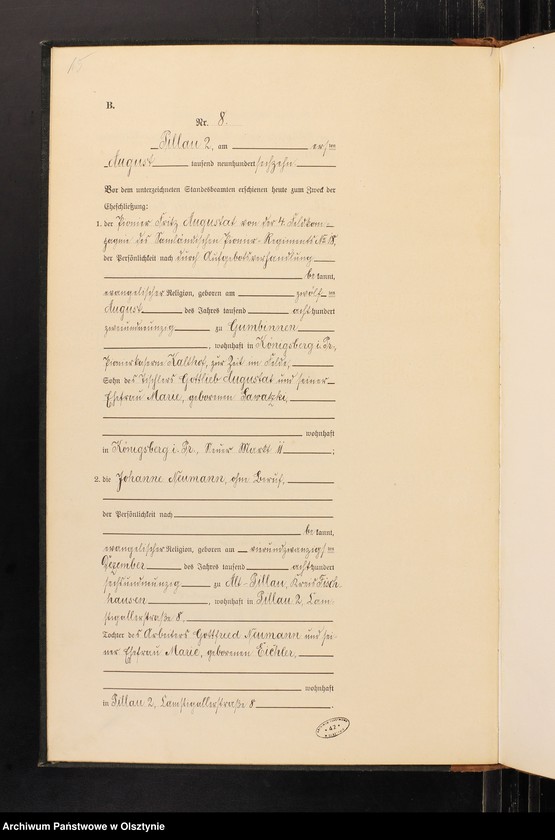 B.
Nr. 8.
Pillau 2, am ersten
August tausend neunhundert sechzehn
Vor dem unterzeichneten Standesbeamten erschienen heute zum Zweck der
Eheschließung:
1. der Pionier Fritz Augustat von der 4. Feldkom-
pagnie des Samländischen Pionier-Regiments No 18,
der Persönlichkeit nach durch Aufgebotsverhandlung
be kannt,
evangelischer Religion, geboren am zwölften
August des Jahres tausend achthundert
zweiundneunzig zu Gumbinnen
, wohnhaft in Königsberg i. Pr.,
Pionierkaserne Kalthof, zur Zeit im Felde,
Sohn des Tischlers Gottlieb Augustat und seiner
Ehefrau Marie, geborenen Sawatzki,
wohnhaft
in Königsberg i. Pr., Neuer Markt 11;
2. die Johanne Neumann, ohne Beruf,
der Persönlichkeit nach
be kannt,
evangelischer Religion, geboren am vierundzwanzigsten
Dezember des Jahres tausend achthundert
sechsundneunzig zu Alt-Pillau, Kreis Fisch-
hausen, wohnhaft in Pillau 2, Cam-
stigallerstraße 8,
Tochter des Arbeiters Gottfried Neumann und sei-
ner Ehefrau Marie, geborenen Eichler,
wohnhaft
in Pillau 2, Camstigallerstraße 8.
Archiwum Państwowe w Olsztynie